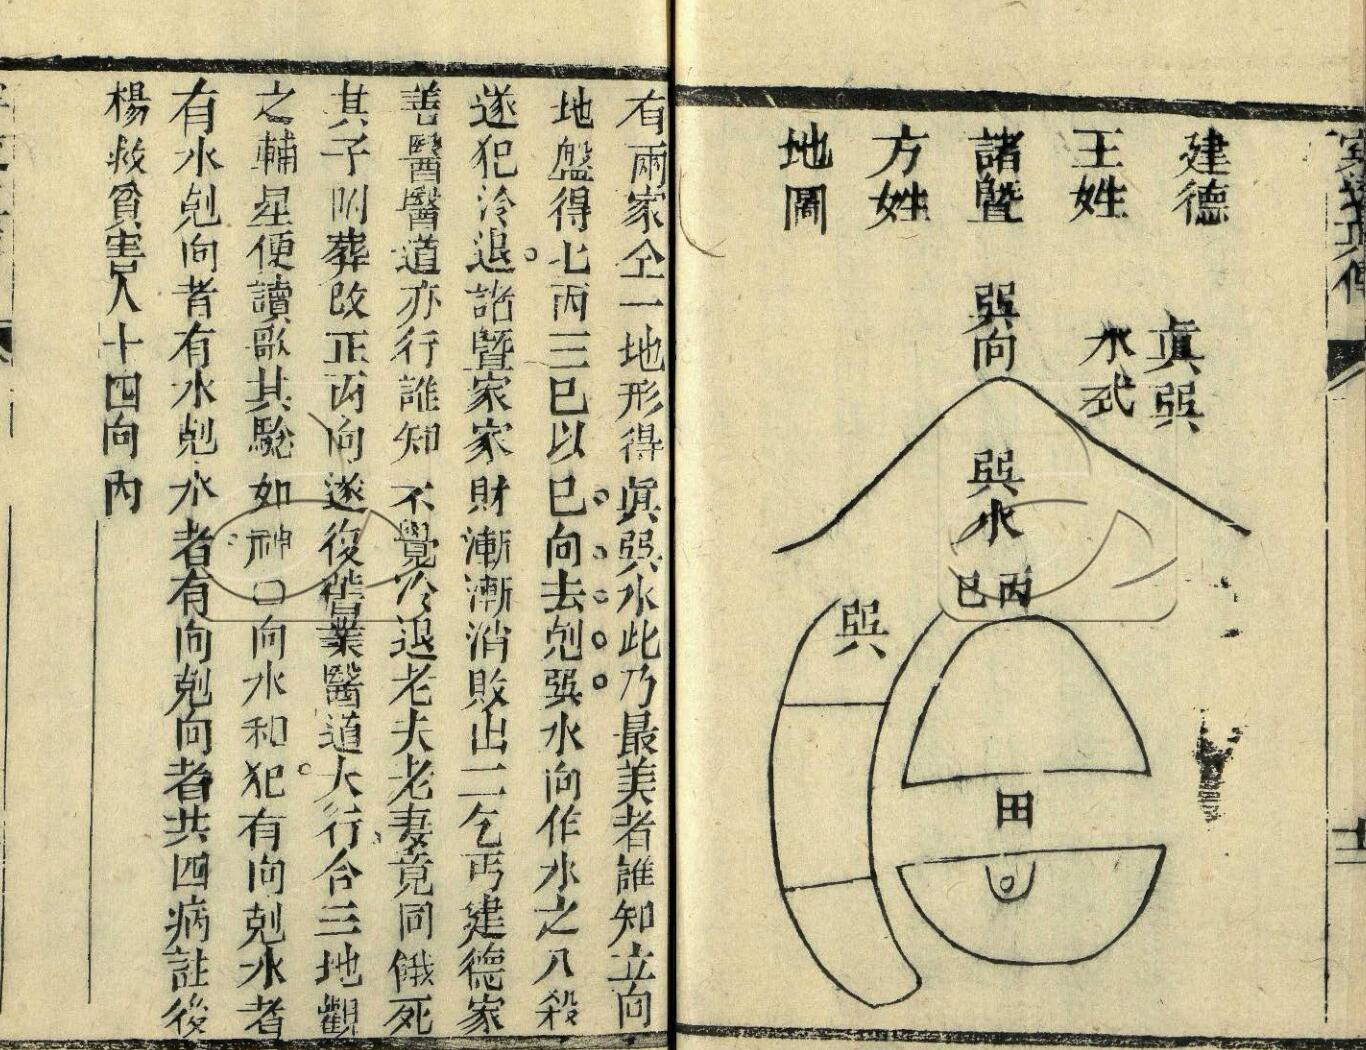 建德
王姓
諸暨
方姓
地圖
眞巽
水式
巽向
巽水
丙
巳
巽
田
有兩家仝一地形得眞巽水此乃最美者誰知立向
地盤得七丙三巳以巳向去剋巽水向作水之八殺
遂犯冷退諸暨家家財漸漸消敗出二乞丐建德家
善醫醫道亦行誰知不覺冷退老夫老妻竟同餓死
其子附葬改正丙向遂復舊業醫道大行合三地觀
之輔星便讀歌其驗如神口向水和犯有向剋水者
有水剋向者有水剋水者有向剋向者共四病註後
楊救貧害人十四向內